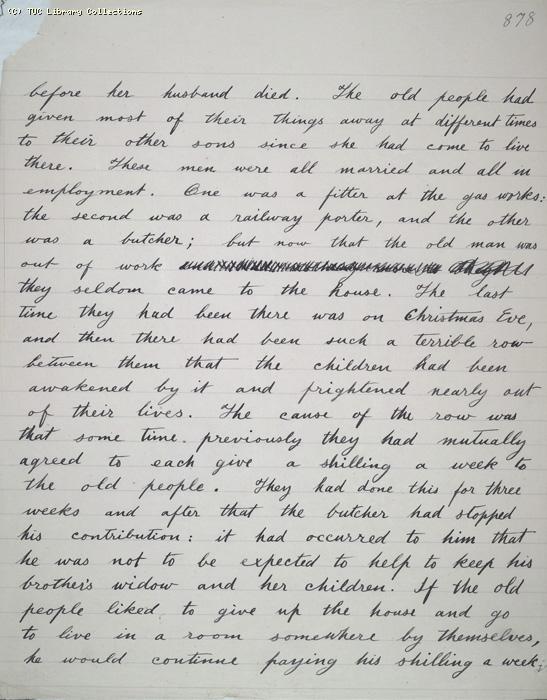 (C) TUC Library Collections
878
before her husband died. The old people had
given most of their things away at different times
to their other sons since she had come to live
there. These men were all married and all in
employment. One was a fitter at the gas works:
the second was a railway porter, and the other
was a butcher; but now that the old man was
out of work
they seldom came to the house. The last
time they had been there was on Christmas Eve,
and then there had been such a terrible row
between them that the children had been
awakened by it and frightened nearly out
of their lives. The cause of the row was
that some time previously they had mutually
agreed to each give a shilling a week to
the old people. They had done this for three
weeks and after that the butcher had stopped
his contribution: it had occurred to him that
he was not to be expected to help to keep his
brother's widow and her children. If the old
people liked to give up the house and go
to live in a room somewhere by themselves,
he would continue paying his shilling a week;